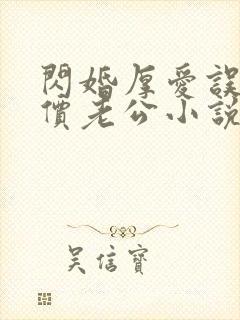 閃婚厚愛誤
價老公小說
吳信寶